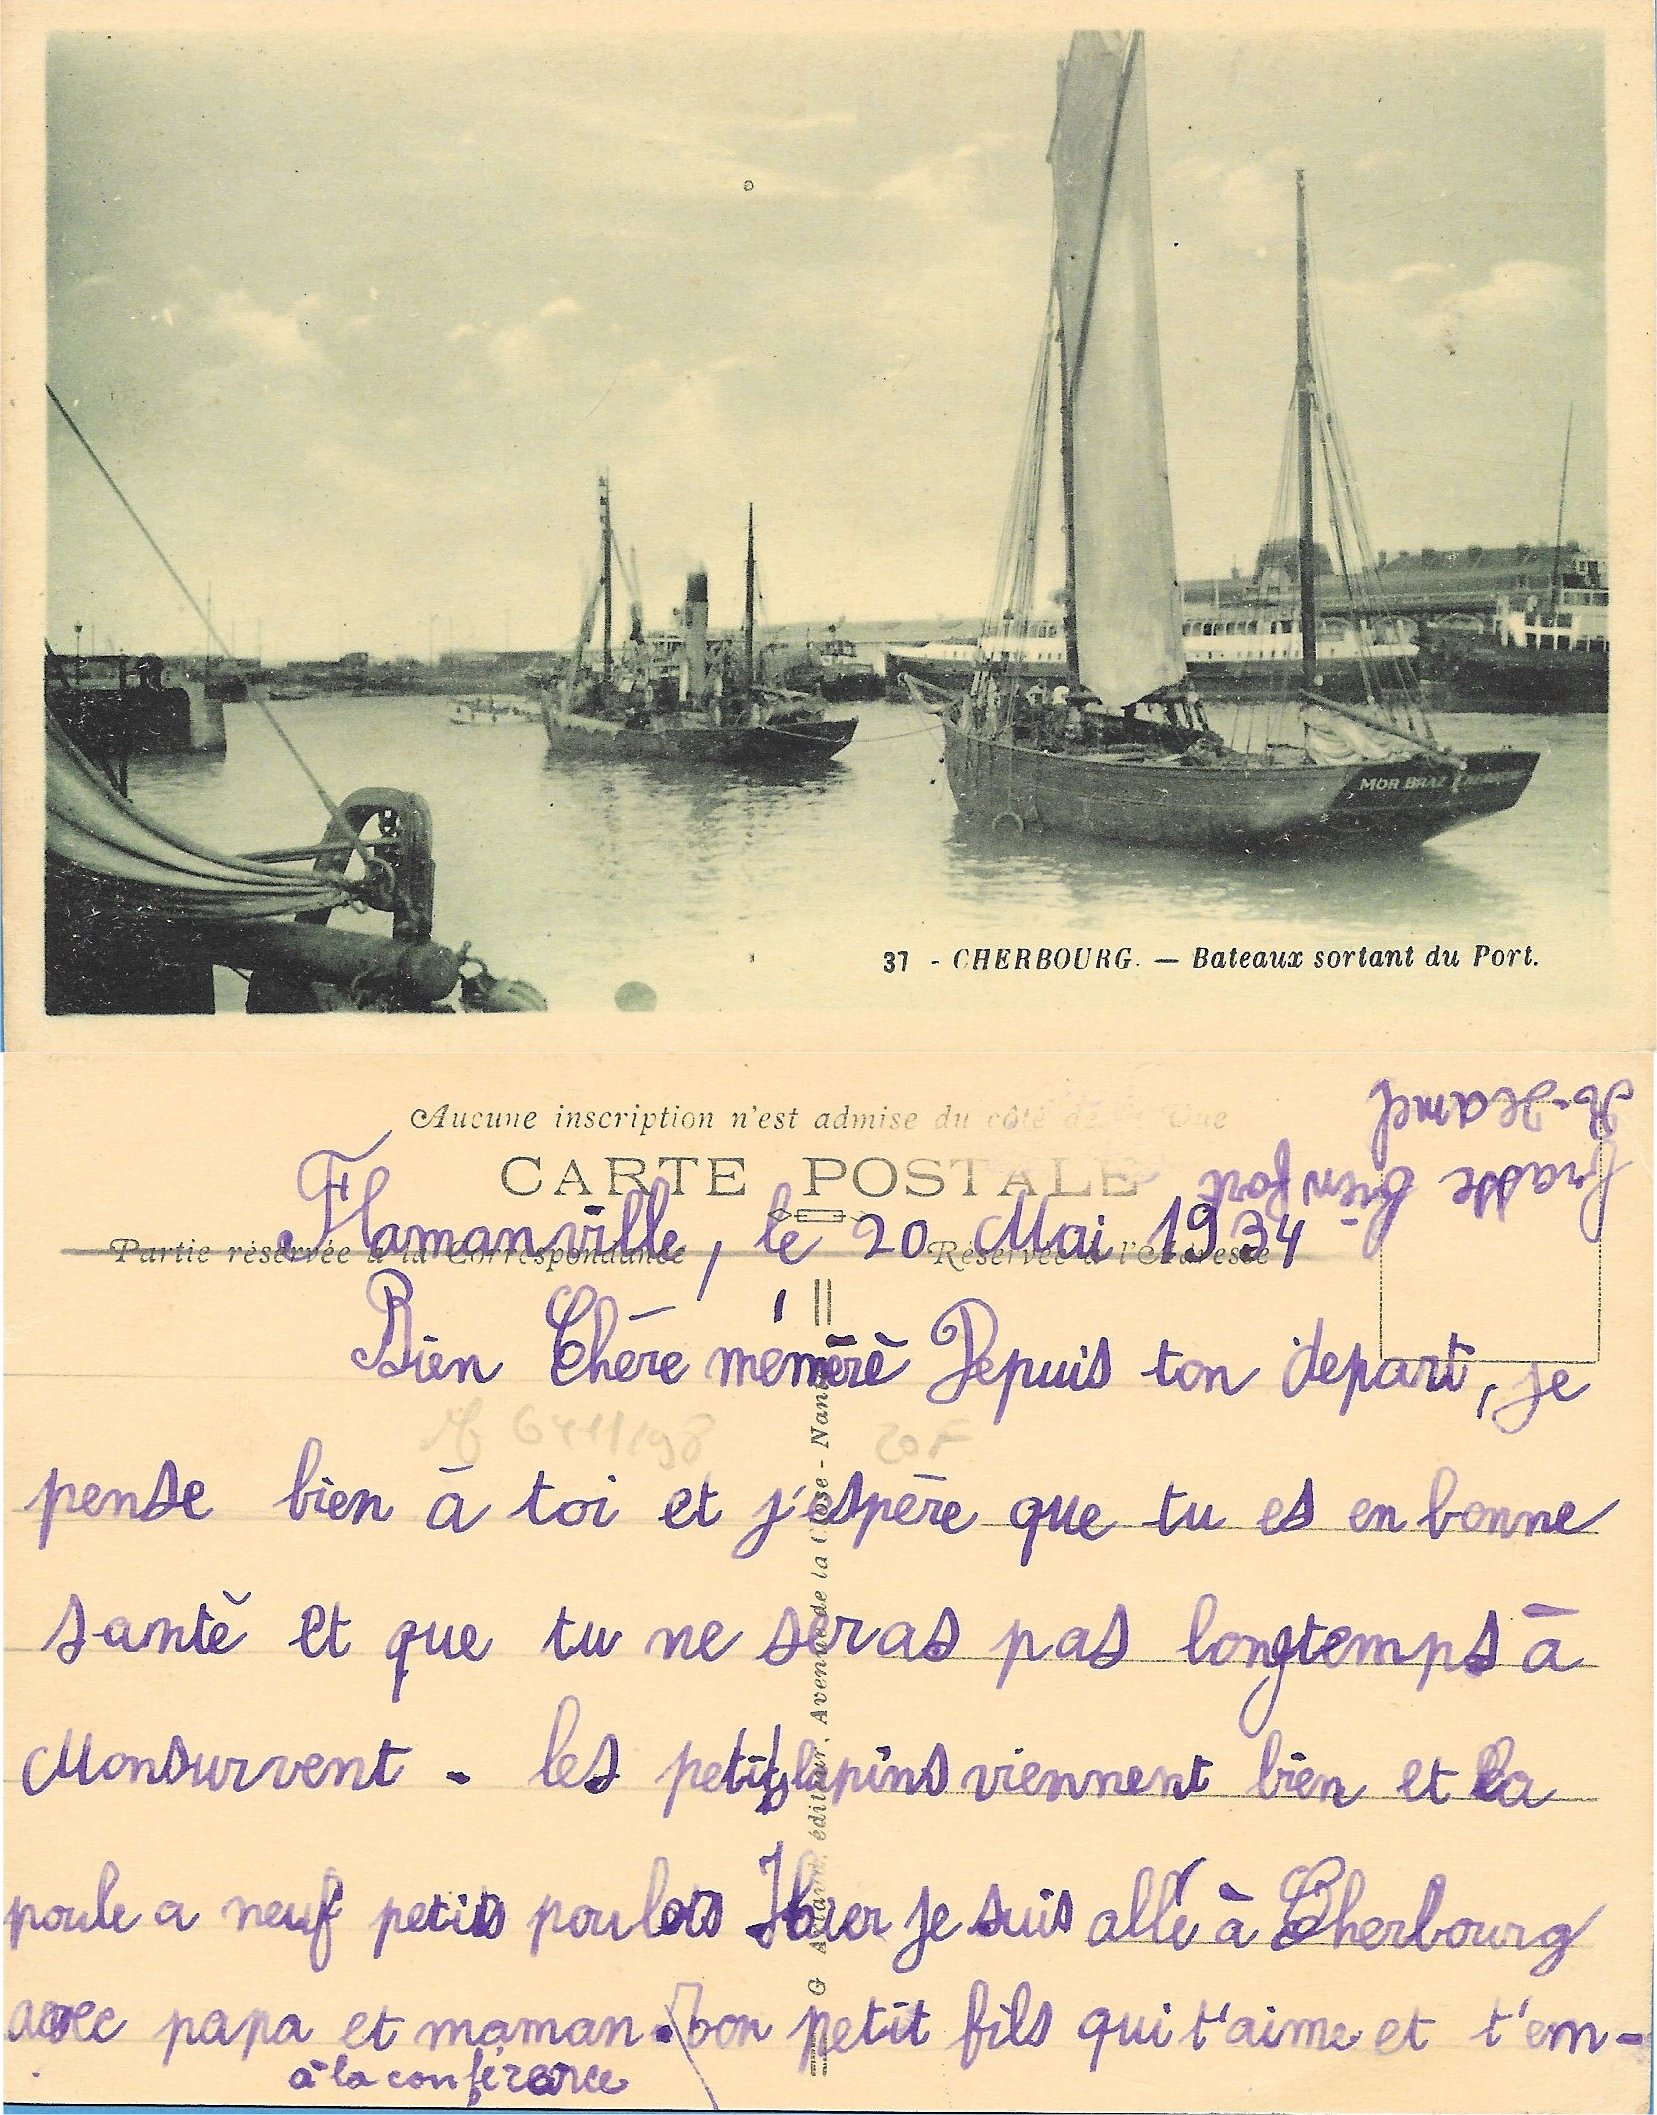 MOR BRAZ
37 - CHERBOURG. — Bateaux sortant du Port.
Aucune inscription n'est admise du côté de la Vue
CARTE POSTALE
Flamanville, le 20 Mai 1934
Partie réservée à la Correspondance
Réservée à l'Adresse
Bien Chère mémère Depuis ton depart, je
pense bien à toi et j'espère que tu es en bonne
santé et que tu ne seras pas longtemps à
Monsurvent - les petits lapins viennent bien et la
poule a neuf petits poulets Hier je suis allé à Cherbourg
avec papa et maman. Ton petit fils qui t'aime et t'em-
à la conférence
brasse bien fort
G Artaud, éditeur, Avenue de la Close - Nantes
20F